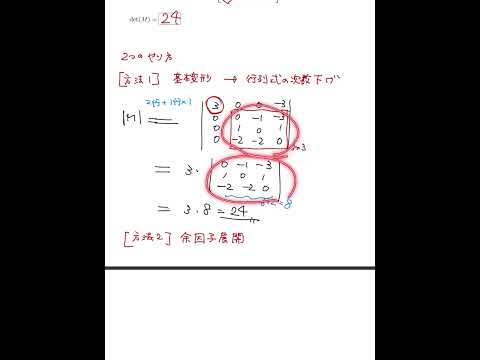 det(M) = 24
2つのやり方
[方法1] 基本変形 → 行列式の次数下げ
2行+1行×1
|M| = | 3 0 0 -3 |
0 0 -1 -3
0 1 0 1
0 -2 -2 0
= 3・ | 0 -1 -3 |
1 0 1
-2 -2 0
= 3・8 = 24
[方法2] 余因子展開